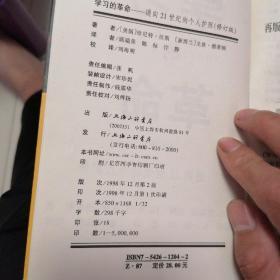 学习的革命——通向21世纪的个人护照(修订版)
著 者/[美国]珍尼特·沃斯 [新西兰]戈登·德莱顿
译 者/顾瑞荣 陈标 许静
校 译/刘海明
责任编辑/张帆
装帧设计/宋珍妮
责任制作/钱震华
责任校对/刘烨扬
出 版/上海三联书店
(200233) 中国上海市钦州南路81号
发 行/上海三联书店
印 刷/北京四季青印刷厂印刷
版 次/1998年12月第2版
印 次/1998年12月第1次印刷
开 本/850×1168 1/32
字 数/298千字
印 张/18
印 数/1—5,000,000
ISBN7-5426-1204-2
Z·87 定价28.00元
再版